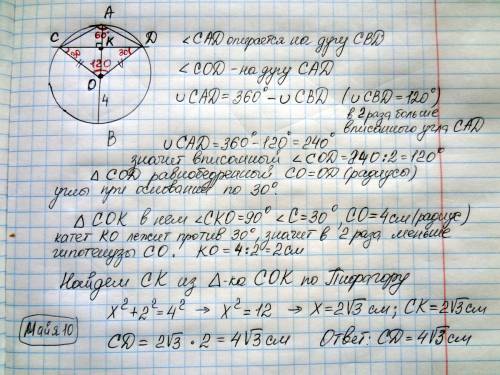 A
60°
C
K
D
30°
30°
120
O
4
B
∠CAD опирается на дугу CBD
∠COD - на дугу CAD
∪CAD = 360° - ∪CBD (∪CBD = 120°)
в 2 раза больше
вписанного угла CAD
∪CAD = 360° - 120° = 240°
значит вписанный ∠COD = 240 : 2 = 120°
△ COD равнобедренный CO = OD (радиусы)
углы при основание по 30°
△ COK в нем ∠CKO = 90° ∠C = 30°, CO = 4см (радиус)
катет KO лежит против 30°, значит в 2 раза меньше
гипотенузы CO. KO = 4 : 2 = 2см
Найдем CK из △-ка COK по Пифагору
x² + 2² = 4² → x² = 12 → x = 2√3 см; CK = 2√3 см
Майя 10
CD = 2√3 · 2 = 4√3 см Ответ: CD = 4√3 см